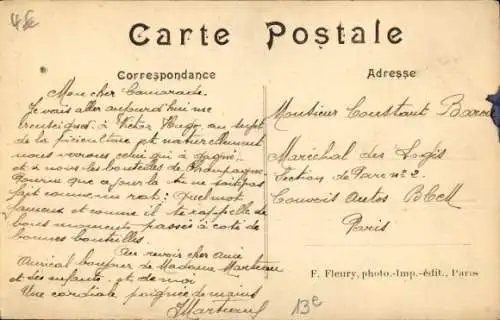 Carte Postale
Correspondance
Mon cher Camarade.
Je vais aller aujourd'hui me
renseigner à Victor Hugo au sujet
de la pisciculture et naturellement
nous verrons celui qui à gagné
et à nous les bouteilles de Champagne.
Pourvu que ce jour là tu ne sois pas
fait comme un rat:
jamais et comme il te rappelle de
bons moments passés à côté de
bonnes bouteilles.
Au revoir cher ami
Amical bonjour de Madame Marteau
et ses enfants et de moi
Une cordiale poignée de mains
Marteau
Adresse
Monsieur Constant
Maréchal des Logis
Section de Parc n° 2
Convois Autos B C M
Paris
F. Fleury, photo.-Imp.-édit., Paris
13e